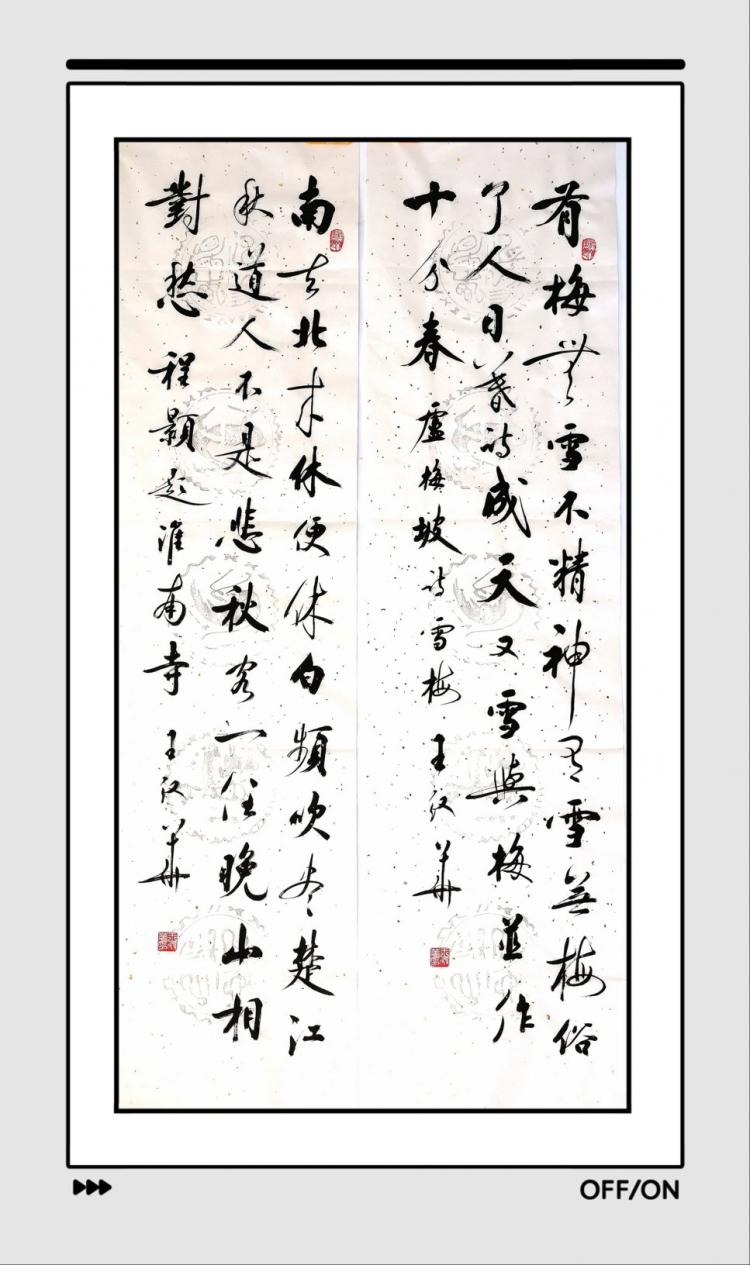 有梅無雪不精神有雪無梅俗
了人日暮诗成天又雪與梅並作
十分春 盧梅坡诗雪梅 王汉華
南去北来休便休白頻吹尽楚江
秋道人不是悲秋客一任晚山相
對愁 程顥題淮南寺 王汉華
OFF/ON